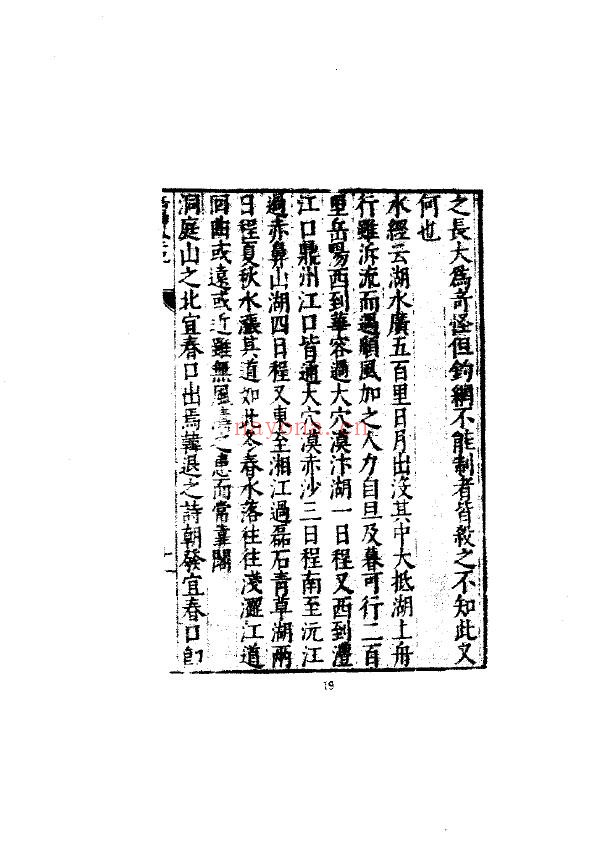 之長大爲奇怪但釣網不能制者皆殺之不知此又
何也
水經云湖水廣五百里日月出沒其中大抵湖上舟
行雖泝流而遇順風加之人力自旦及暮可行二百
里岳陽西到華容過大穴漠汴湖一日程又西到澧
江口鼎州江口皆通大穴漠赤沙三日程南至沅江
過赤鼻山湖四日程又東至湘江過磊石青草湖兩
日程夏秋水漲其道如此冬春水落往往淺澀江道
回曲或遠或近雖無風濤之患而常靠閣
洞庭山之北宜春口出焉韓退之詩朝發宜春口卽
十一
19
nnyona.cn